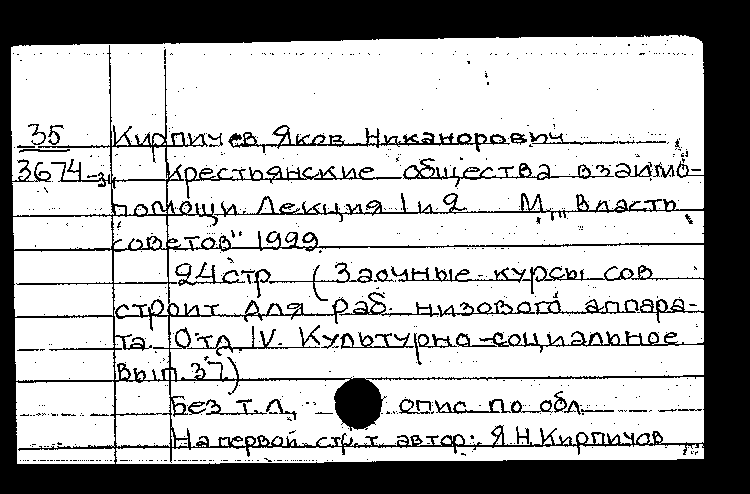 35 Кирпичев, Яков Никанорович
3674-34 Крестьянские общества взаимо-
помощи. Лекция 1 и 2 М., „Власть
советов" 1929.
24 стр (Заочные курсы сов
строит для раб. низового аппара-
та. Отд IV. Культурно-социальное
Вып. 37)
Без т.л., опис по обл.
На первой стр. т. автор: Я.Н.Кирпичов